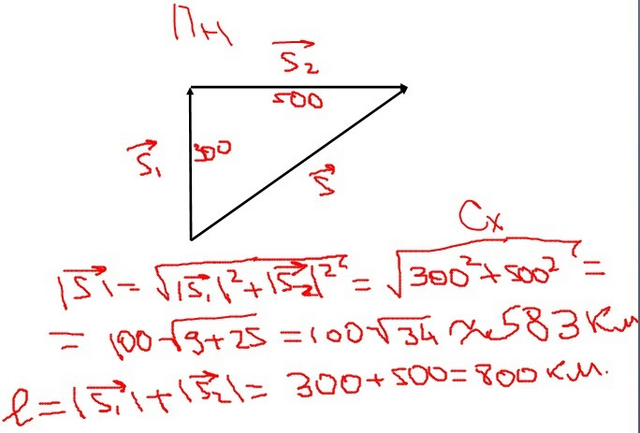 Пн
S⃗₂
500
S⃗₁ 300
S⃗
Сх
|S⃗| = √(|S⃗₁|² + |S⃗₂|²) = √(300² + 500²) =
= 100√(9+25) = 100√34 ≈ 583 км
ℓ = |S⃗₁| + |S⃗₂| = 300 + 500 = 800 км.